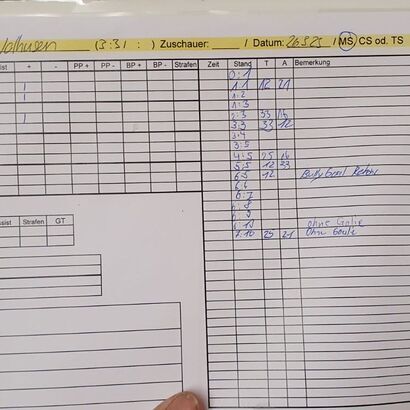 (3:31 : ) Zuschauer: / Datum: 26.3.25 / MS/ CS od. TS
ist + - PP + PP - BP + BP - Strafen Zeit Stand T A Bemerkung
0:1
1:1 12 21
1:2
1:3
2:3 33
3:3 33 12
3:4
3:5
4:5 25 16
5:5 12 33
6:5 12
6:6
6:7
:8
:9
ssist Strafen GT
:10 ohne Goalie
7:10 25 21 Ohne Goalie